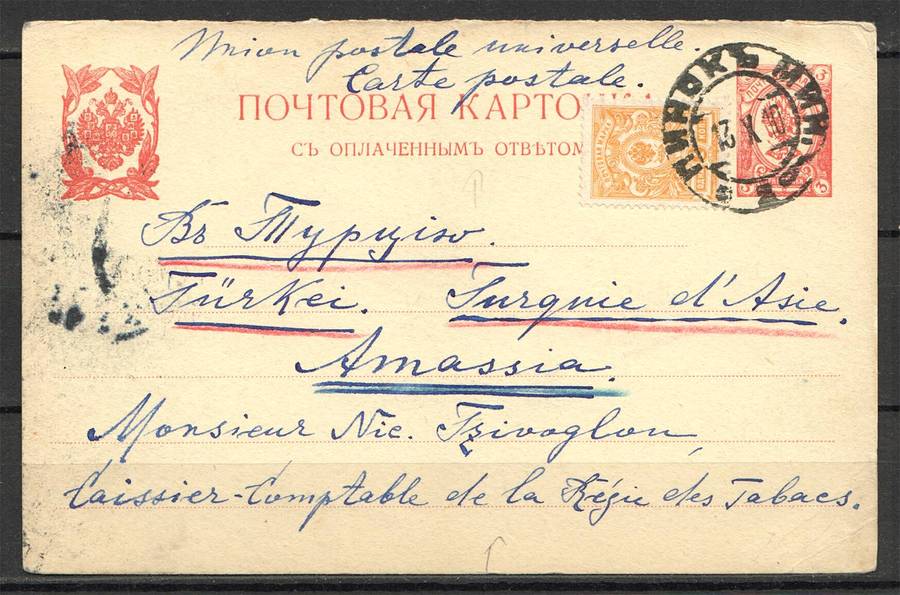 Union postale universelle.
Carte postale.
ПОЧТОВАЯ КАРТО
СЪ ОПЛАЧЕННЫМЪ ОТВѢТОМ
ПИНСКЪ МИН.
Въ Турцію.
Türkei. Turquie d'Asie.
Amassia.
Monsieur Nic.
Caissier-Comptable de la Régie des Tabacs.